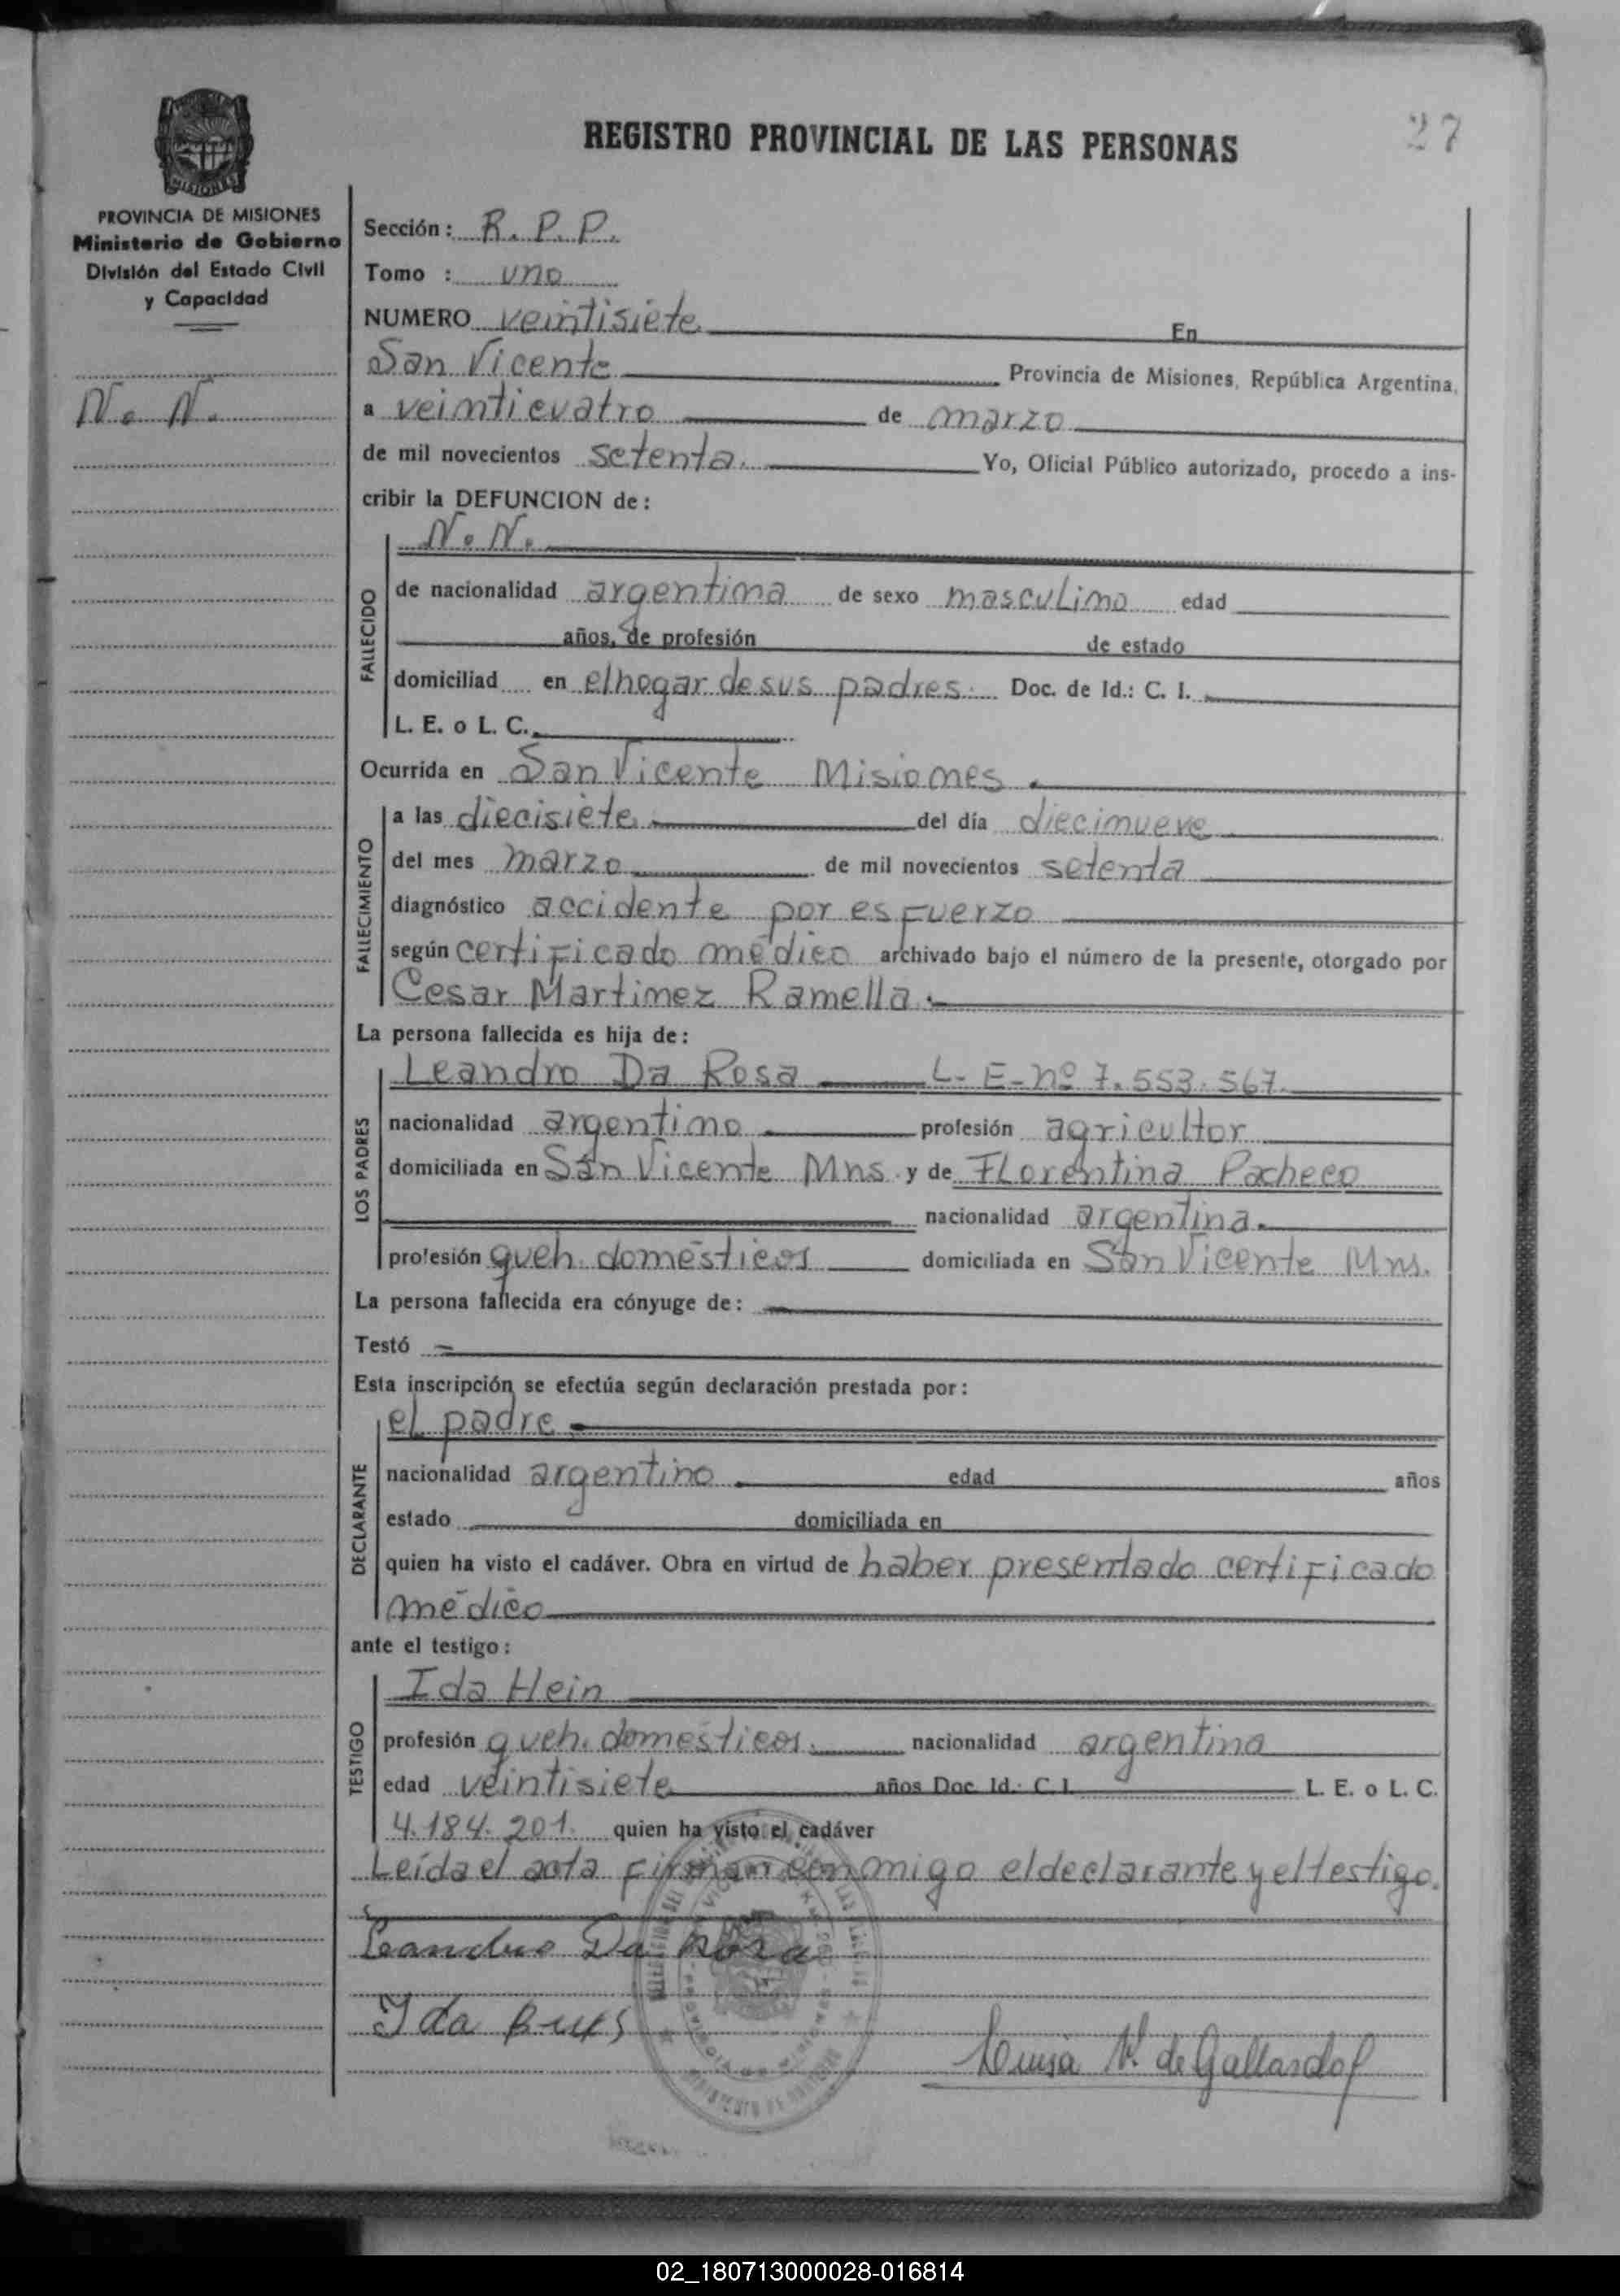 27
REGISTRO PROVINCIAL DE LAS PERSONAS
MISIONES
PROVINCIA DE MISIONES
Ministerio de Gobierno
División del Estado Civil
y Capacidad
N. N.
Sección: R. P. P.
Tomo : uno
NUMERO veintisiete En
San Vicente Provincia de Misiones, República Argentina,
a veinticuatro de marzo
de mil novecientos setenta. Yo, Oficial Público autorizado, procedo a ins-
cribir la DEFUNCION de:
N. N.
FALLECIDO
de nacionalidad argentina de sexo masculino edad
años, de profesión de estado
domiciliad en el hogar de sus padres. Doc. de Id.: C. I.
L. E. o L. C.
Ocurrida en San Vicente Misiones.
FALLECIMIENTO
a las diecisiete del día diecinueve
del mes marzo de mil novecientos setenta
diagnóstico accidente por esfuerzo
según certificado médico archivado bajo el número de la presente, otorgado por
Cesar Martinez Ramella.
La persona fallecida es hija de:
LOS PADRES
Leandro Da Rosa L. E. nº 7.553.567.
nacionalidad argentino profesión agricultor
domiciliada en San Vicente Mns. y de Florentina Pacheco
nacionalidad argentina.
profesión queh. domésticos domiciliada en San Vicente Mns.
La persona fallecida era cónyuge de:
Testó
Esta inscripción se efectúa según declaración prestada por:
DECLARANTE
el padre
nacionalidad argentino edad años
estado domiciliada en
quien ha visto el cadáver. Obra en virtud de haber presentado certificado
médico
ante el testigo:
TESTIGO
Ida Hein
profesión queh. domésticos. nacionalidad argentina
edad veintisiete años Doc. Id.: C. I. L. E. o L. C.
4.184.201. quien ha visto el cadáver
Leída el acta firman conmigo el declarante y el testigo.
Leandro Da Rosa
Ida
Luisa V. de Gallardo
02_180713000028-016814